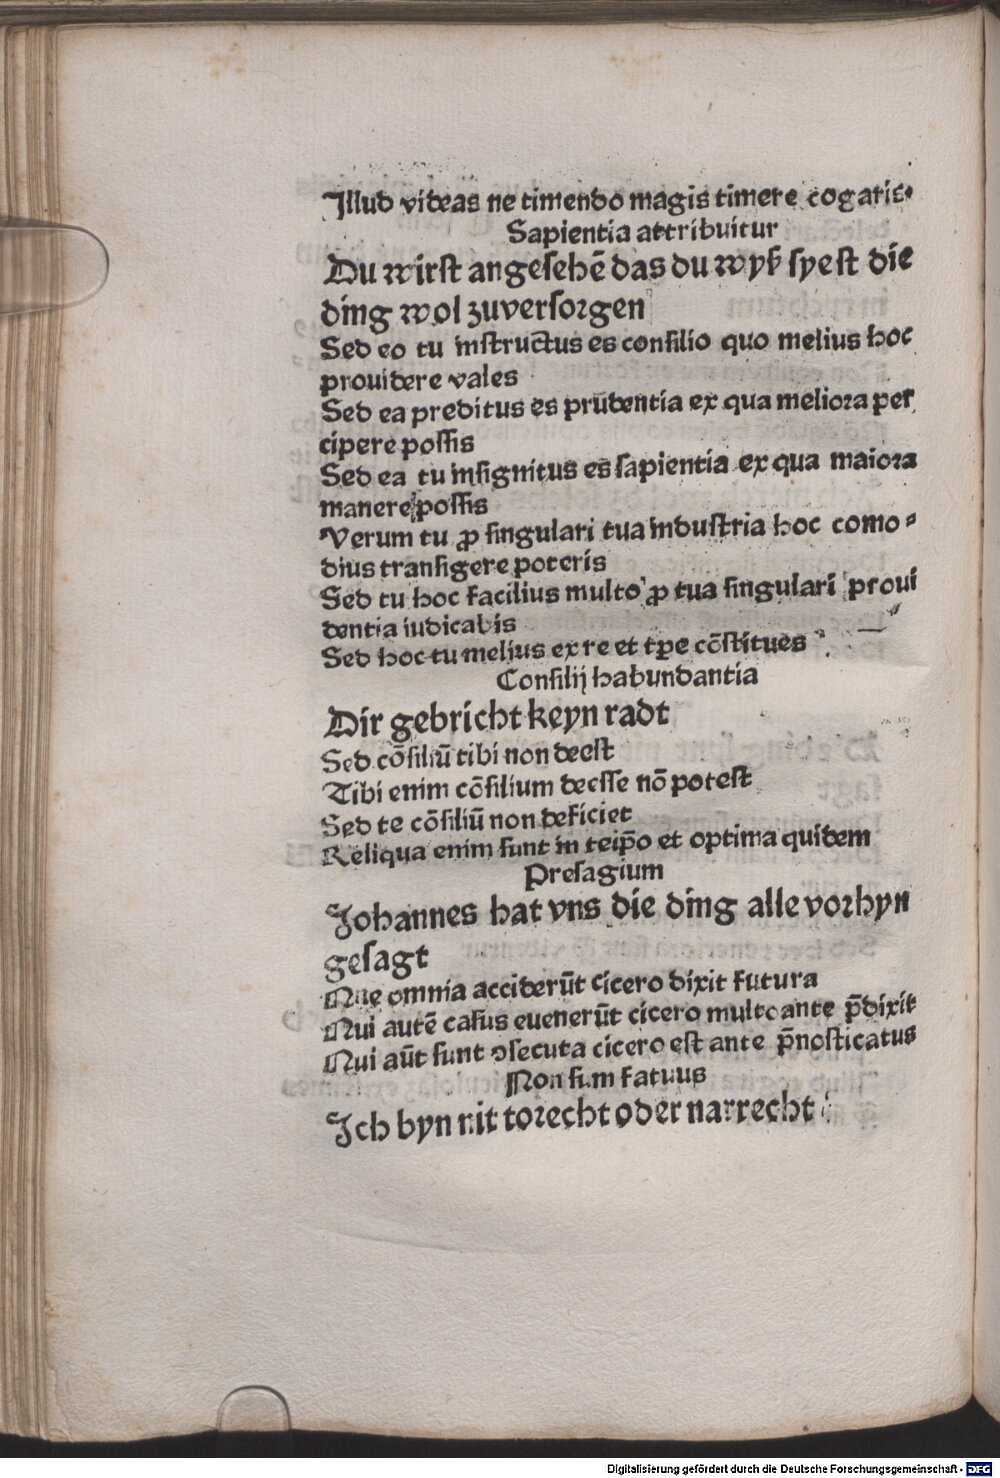 Illud videas ne timendo magis timere cogaris.
Sapientia attribuitur
Du wirst angesehē das du wyß syest die
ding wol zuversorgen
Sed eo tu instructus es consilio quo melius hoc
prouidere vales
Sed ea preditus es prudentia ex qua meliora per
cipere possis
Sed ea tu insignitus es sapientia ex qua maiora
manere possis
Verum tu ꝓ singulari tua industria hoc como⸗
dius transigere poteris
Sed tu hoc facilius multo ꝓ tua singulari proui
dentia iudicabis
Sed hoc tu melius ex re et tp̄e cōstitues
Consilij habundantia
Dir gebricht keyn radt
Sed cōsiliū tibi non deest
Tibi enim cōsilium deesse nō potest
Sed te cōsiliū non deficiet
Reliqua enim sunt in teip̄o et optima quidem
Presagium
Johannes hat vns die ding alle vorhyn
gesagt
Que omnia acciderūt cicero dixit futura
Qui autē casus euenerūt cicero multo ante p̄dixit
Qui aūt sunt ꝯsecuta cicero est ante p̄nosticatus
Non sum fatuus
Ich byn nit torecht oder narrecht
Digitalisierung gefördert durch die Deutsche Forschungsgemeinschaft - DFG